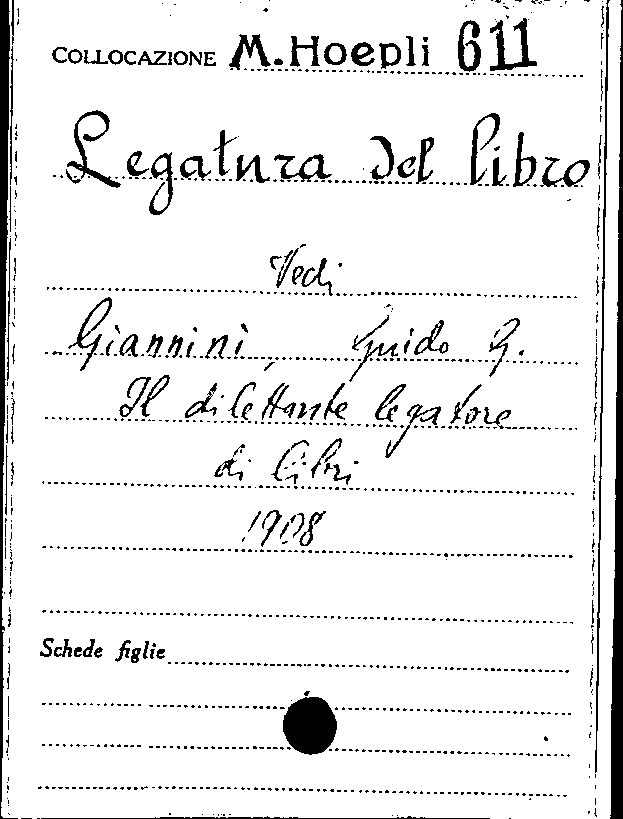 COLLOCAZIONE M. Hoepli 611
Legatura del libro
Vedi
Giannini, Guido G.
Il dilettante legatore
di libri
1908
Schede figlie